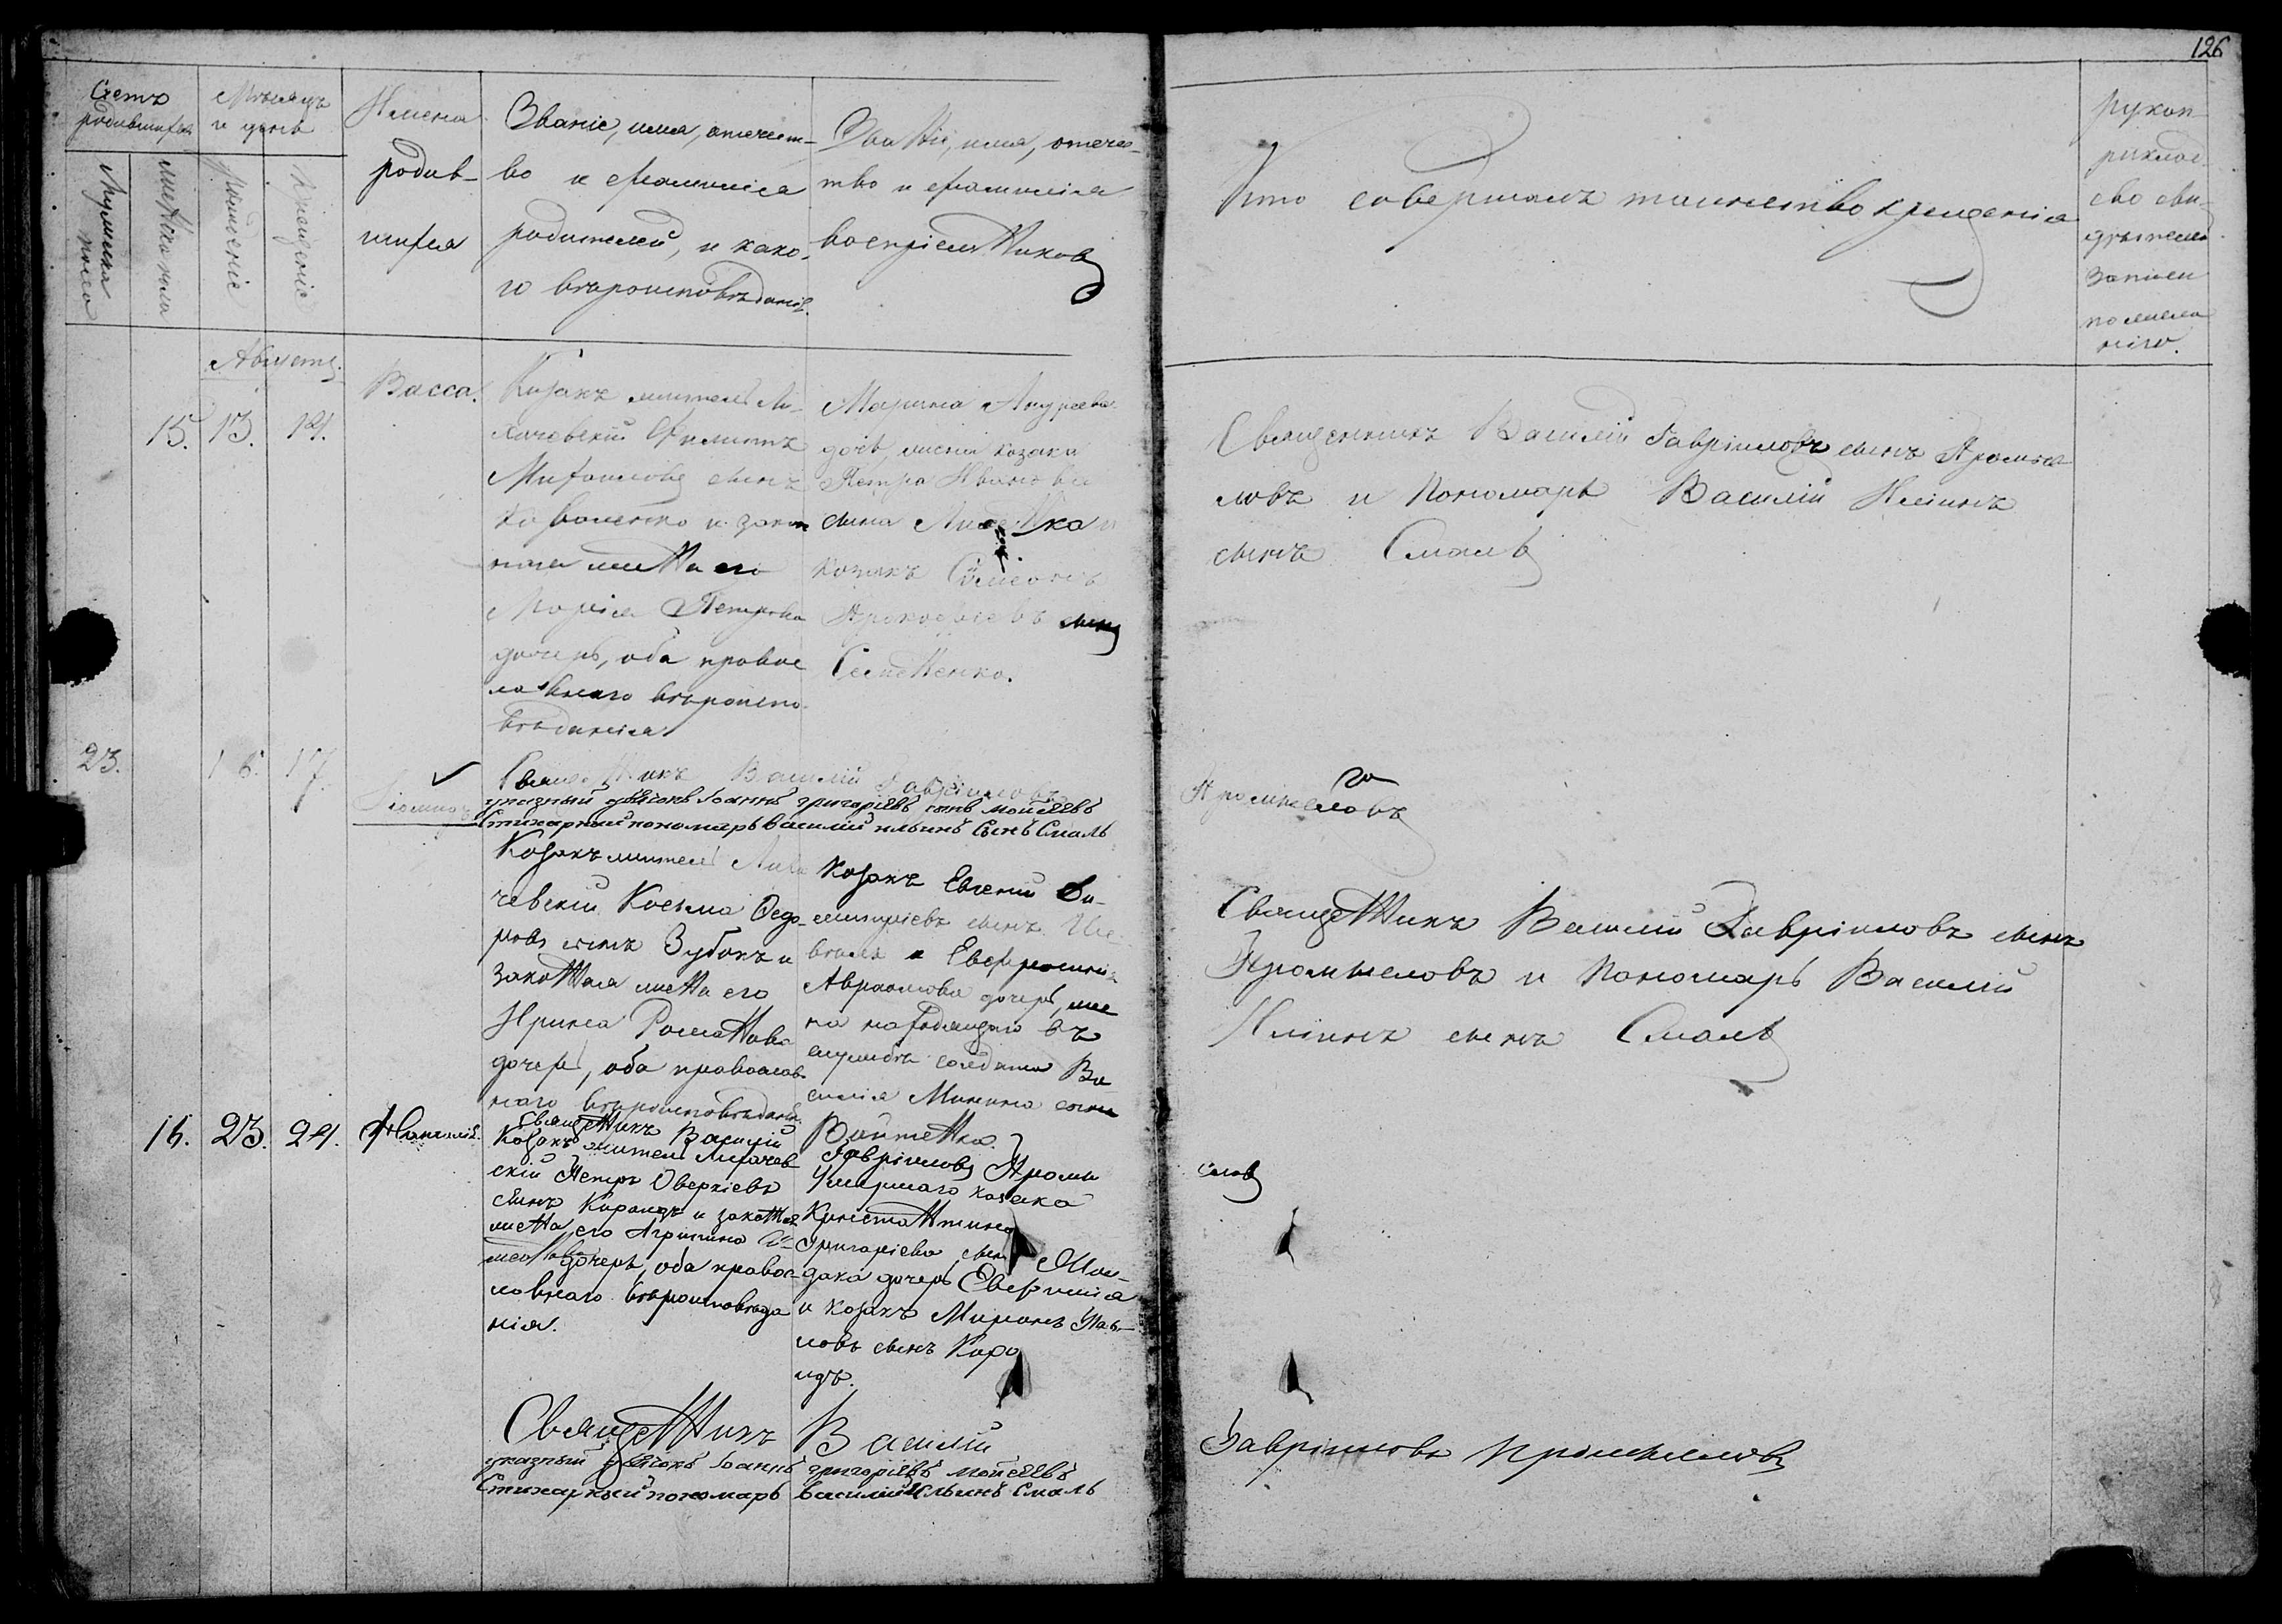 126
Счетъ родившихся
Мѣсяцъ и день
Имена родив-
шихся
Званіе, имя, отечест-
во и фамилія
родителей, и како-
го вѣроисповѣданія.
Званіе, имя, отечес-
тво и фамилія
воспріемниковъ
Кто совершалъ таинство крещенія
рукоп-
риклад-
ство сви-
дѣтелей
записи
по жела-
нію.
Мужеска пола
Женска пола
Рожденіе
Крещеніе
Августъ.
15. 13. 14.
Васса.
Козакъ житель Ли-
хачевскій Филиппъ
Михайловъ сынъ
Коваленко и закон
ная жена его
Марія Петрова
дочерь, оба правос
лавнаго вѣроиспо-
вѣданія
Марина Андреева
дочь, жена козака
Петра Иванова
сына
козакъ Симеонъ
Прокофіевъ сынъ
Священникъ Василій Гавріиловъ сынъ Промысе-
ловъ и Пономарь Василій Иліинъ
сынъ Смаль
23. 16. 17.
Священникъ Василій Гавріиловъ
Промыселовъ
указный дьячокъ Іоаннъ григоріевъ сынъ моисеевъ
Стихарный пономарь василий ильинъ Сынъ Смаль
Козакъ житель Лиха
чевскій Косьма Ѳедо-
ровъ сынъ Зубокъ и
законная жена его
Ирина Романова
дочерь, оба православ-
наго вѣроисповѣданія
Козакъ Евгеній Ди-
митріевъ сынъ
и Евфросинія
Авраамова дочерь, же
на находящагося въ
службѣ солдата Ва
силія Минина сына
Войтенка.
Священникъ Василій Гавріиловъ сынъ
Промыселовъ и Пономарь Василій
Иліинъ сынъ Смаль
Священникъ Василій Гавріиловъ Промы
селовъ
16. 23. 24.
Наталія.
Козакъ житель Лихачев
скій Петръ Оверкіевъ
сынъ и законная
жена его Агрипина
дочерь, оба правос-
лавнаго вѣроисповѣда
нія.
Умершаго козака
Константина
Григоріева сына
дочерь Евфимія
и козакъ Миронъ Пав-
ловъ сынъ
Священникъ Василій Гавріиловъ Промыселовъ
указный дьячокъ Іоаннъ григоріевъ моисеевъ
Стихарный пономарь василий Ильинъ Смаль